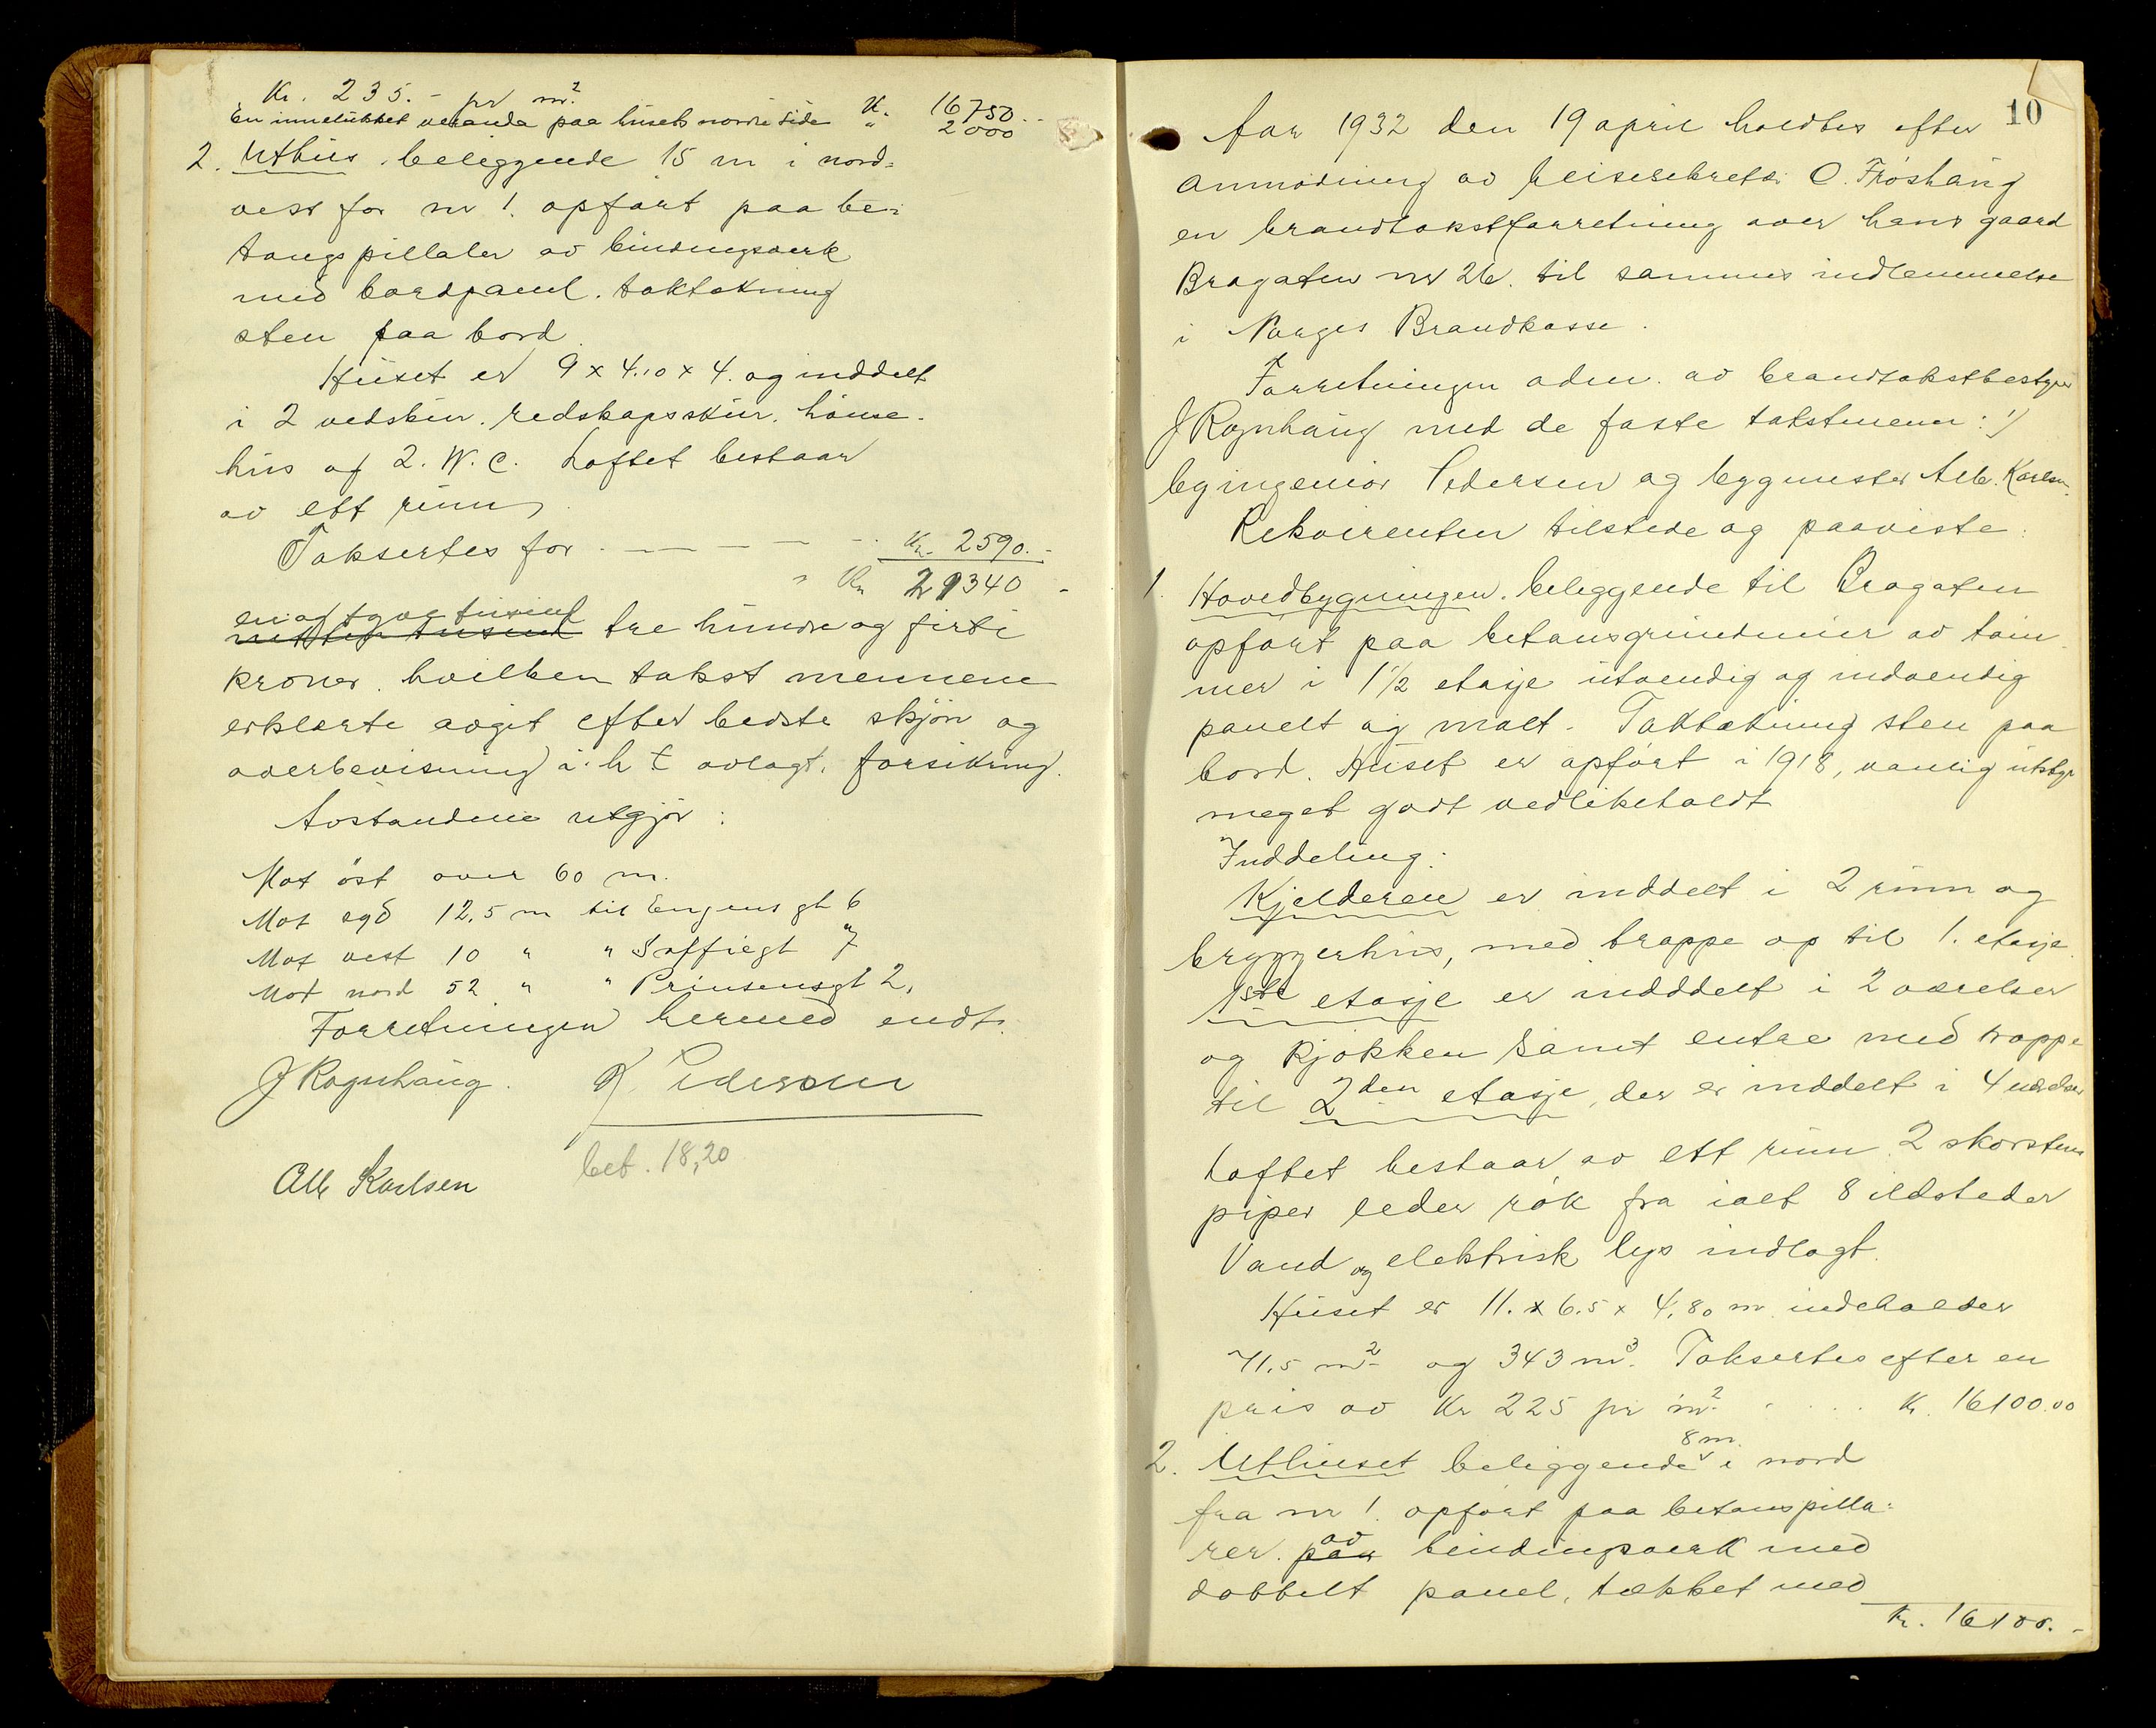 Kr. 235.- pr m².     Kr. 16750.-
En innelukket veranda paa husets nordre side  " 2000
2. Uthus. beliggende 15 m i nord-
vest for nr 1. opfört paa be-
tongpillaler av bindingsverk
med bordpanel. taktekning
sten paa bord.
Huset er 9 x 4.10 x 4. og inddelt
i 2 vedskur. redskapsskur. hönse-
hus og 2. W.C. Loftet bestaar
av ett rum
Taksertes for - - - - Kr. 2590.-
" Kr 21340 -
en og tyve tusind
nitten tusind tre hundre og firti
kroner. hvilken takst mennene
erklærte avgit efter bedste skjön og
overbevisning i. h t avlagt. forsikring.
Avstandene utgjör:
Mot öst over 60 m.
Mot syd 12.5 m til Engensgt 6
Mot vest 10 " " Soffiegt 7
Mot nord 52 " " Prinsensgt 2,
Forretningen hermed endt.
J Rognhaug. K Pedersen
bet. 18,20
Alb Karlsen
10
Aar 1932 den 19 april holdtes efter
anmodning av reisesekretær O. Fröshaug
en brandtakstforretning over hans gaard
Bragaten nr 26. til sammes indlemmelse
i Norges Brandkasse.
Forretningen adm. av brandtakstbestyrer
J Rognhaug med de faste takstmenn:
byingeniör Pedersen og bygmester Alb. Karlsen.
Rekvirenten tilstede og paaviste:
1. Hovedbygningen. beliggende til Bragaten
opfört paa betongrundmur av töm-
mer i 1 1/2 etasje utvendig og indvendig
panelt og malt. Taktækning sten paa
bord. Huset er opfört i 1918, vanlig utstyr
meget godt vedlikeholdt
Inddeling:
Kjelderen er inddelt i 2 rum og
bryggerhus, med trappe op til 1. etasje.
1ste etasje er indddelt i 2 værelser
og kjökken samt entre med trappe
til 2den etasje, der er inddelt i 4 værelser
Loftet bestaar av ett rum 2 skorstens
piper leder rök fra ialt 8 ildsteder
Vand og elektrisk lys indlagt.
Huset er 11. x 6.5 x 4.80 m indeholder
71.5 m² og 343 m³. Taksertes efter en
pris av Kr 225 pr m² . . . . Kr. 16100.00
8 m
2. Uthuset beliggende i nord
fra nr 1. opfört paa betonspilla-
av
rer. paa bindingsverk med
dobbelt panel, tækket med
Kr. 16100.-